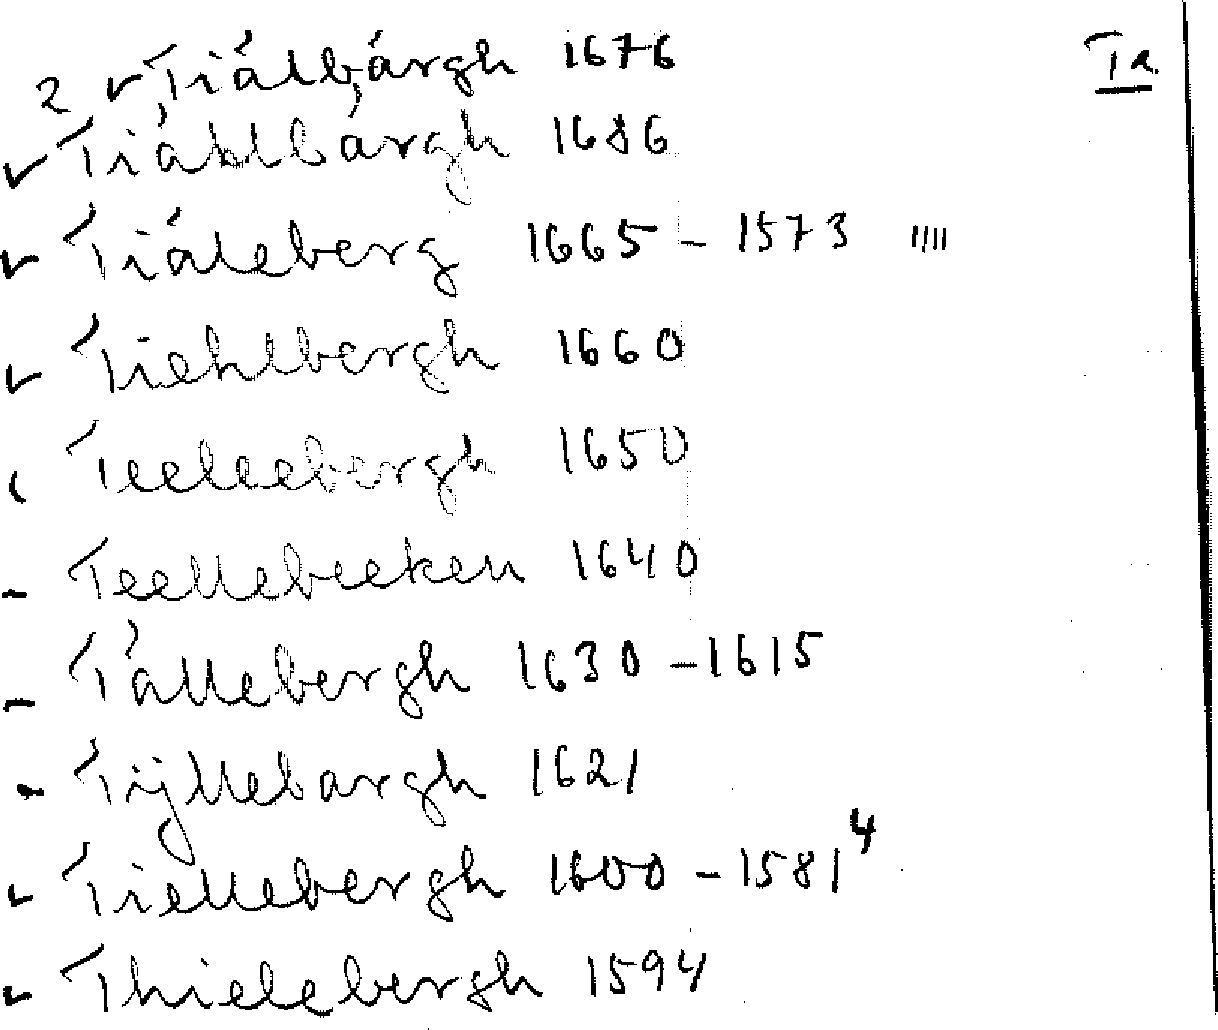 2 Tiálbárgh 1676 Ta.
Tiáhlbårgh 1686
Tiáleberg 1665 - 1573 |||||
Tiehlbergh 1660
Teeleebergh 1650
Teellebeeken 1640
Tállebergh 1630 - 1615
Tijllebargh 1621
Tiellebergh 1600 - 1581 4
Thielebergh 1594